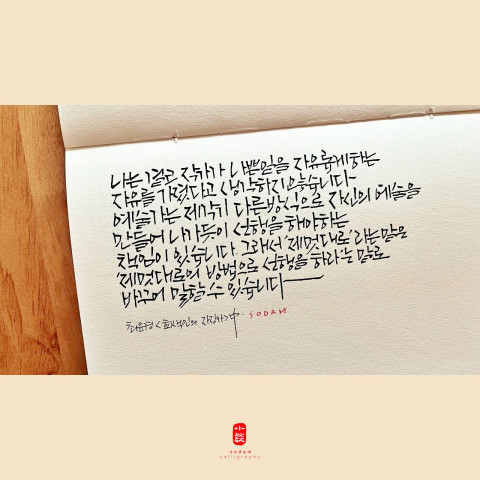 나는 결코 작가가 나쁜일을 자유롭게하는
자유를 가졌다고 생각하지않습니다-
예술가는 제각기 다른방식으로 자신의 예술을
만들어 나가듯이 선행을 해야하는
책임이 있습니다. 그래서 '제멋대로'라는말은
'제멋대로의 방법으로 선행을 하라'는 말로
바꾸어 말할 수 있습니다
최윤정 <회색인의 자장가>中. SODAM
sodam
calligraphy